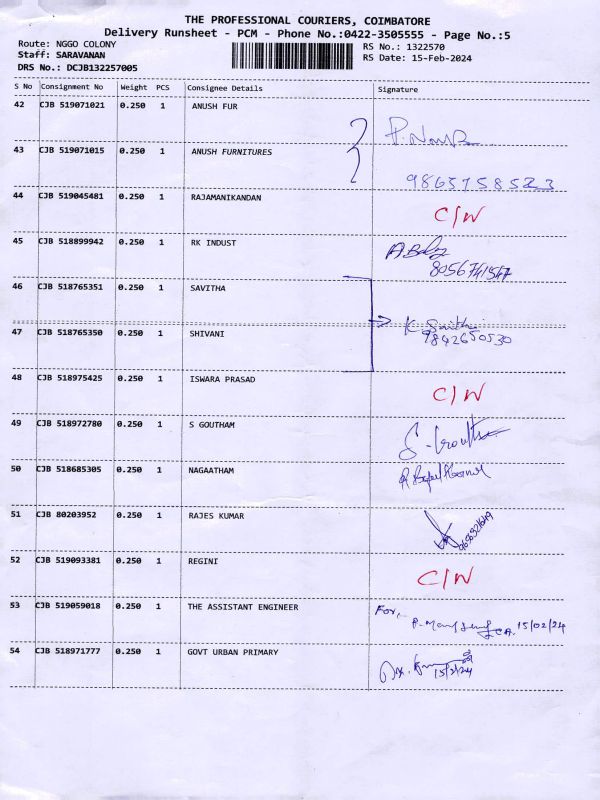 THE PROFESSIONAL COURIERS, COIMBATORE
Delivery Runsheet - PCM - Phone No.:0422-3505555 - Page No.:5
Route: NGGO COLONY
RS No.: 1322570
Staff: SARAVANAN
RS Date: 15-Feb-2024
DRS No.: DCJB132257005
S No Consignment No Weight PCS Consignee Details Signature
42 CJB 519071021 0.250 1 ANUSH FUR
43 CJB 519071015 0.250 1 ANUSH FURNITURES
9865758523
44 CJB 519045481 0.250 1 RAJAMANIKANDAN
C/W
45 CJB 518899942 0.250 1 RK INDUST
46 CJB 518765351 0.250 1 SAVITHA
47 CJB 518765350 0.250 1 SHIVANI
9842650530
48 CJB 518975425 0.250 1 ISWARA PRASAD
C/W
49 CJB 518972780 0.250 1 S GOUTHAM
50 CJB 518685305 0.250 1 NAGAATHAM
51 CJB 80203952 0.250 1 RAJES KUMAR
52 CJB 519093381 0.250 1 REGINI
C/W
53 CJB 519059018 0.250 1 THE ASSISTANT ENGINEER
For,
15/02/24
54 CJB 518971777 0.250 1 GOVT URBAN PRIMARY
15/2/24